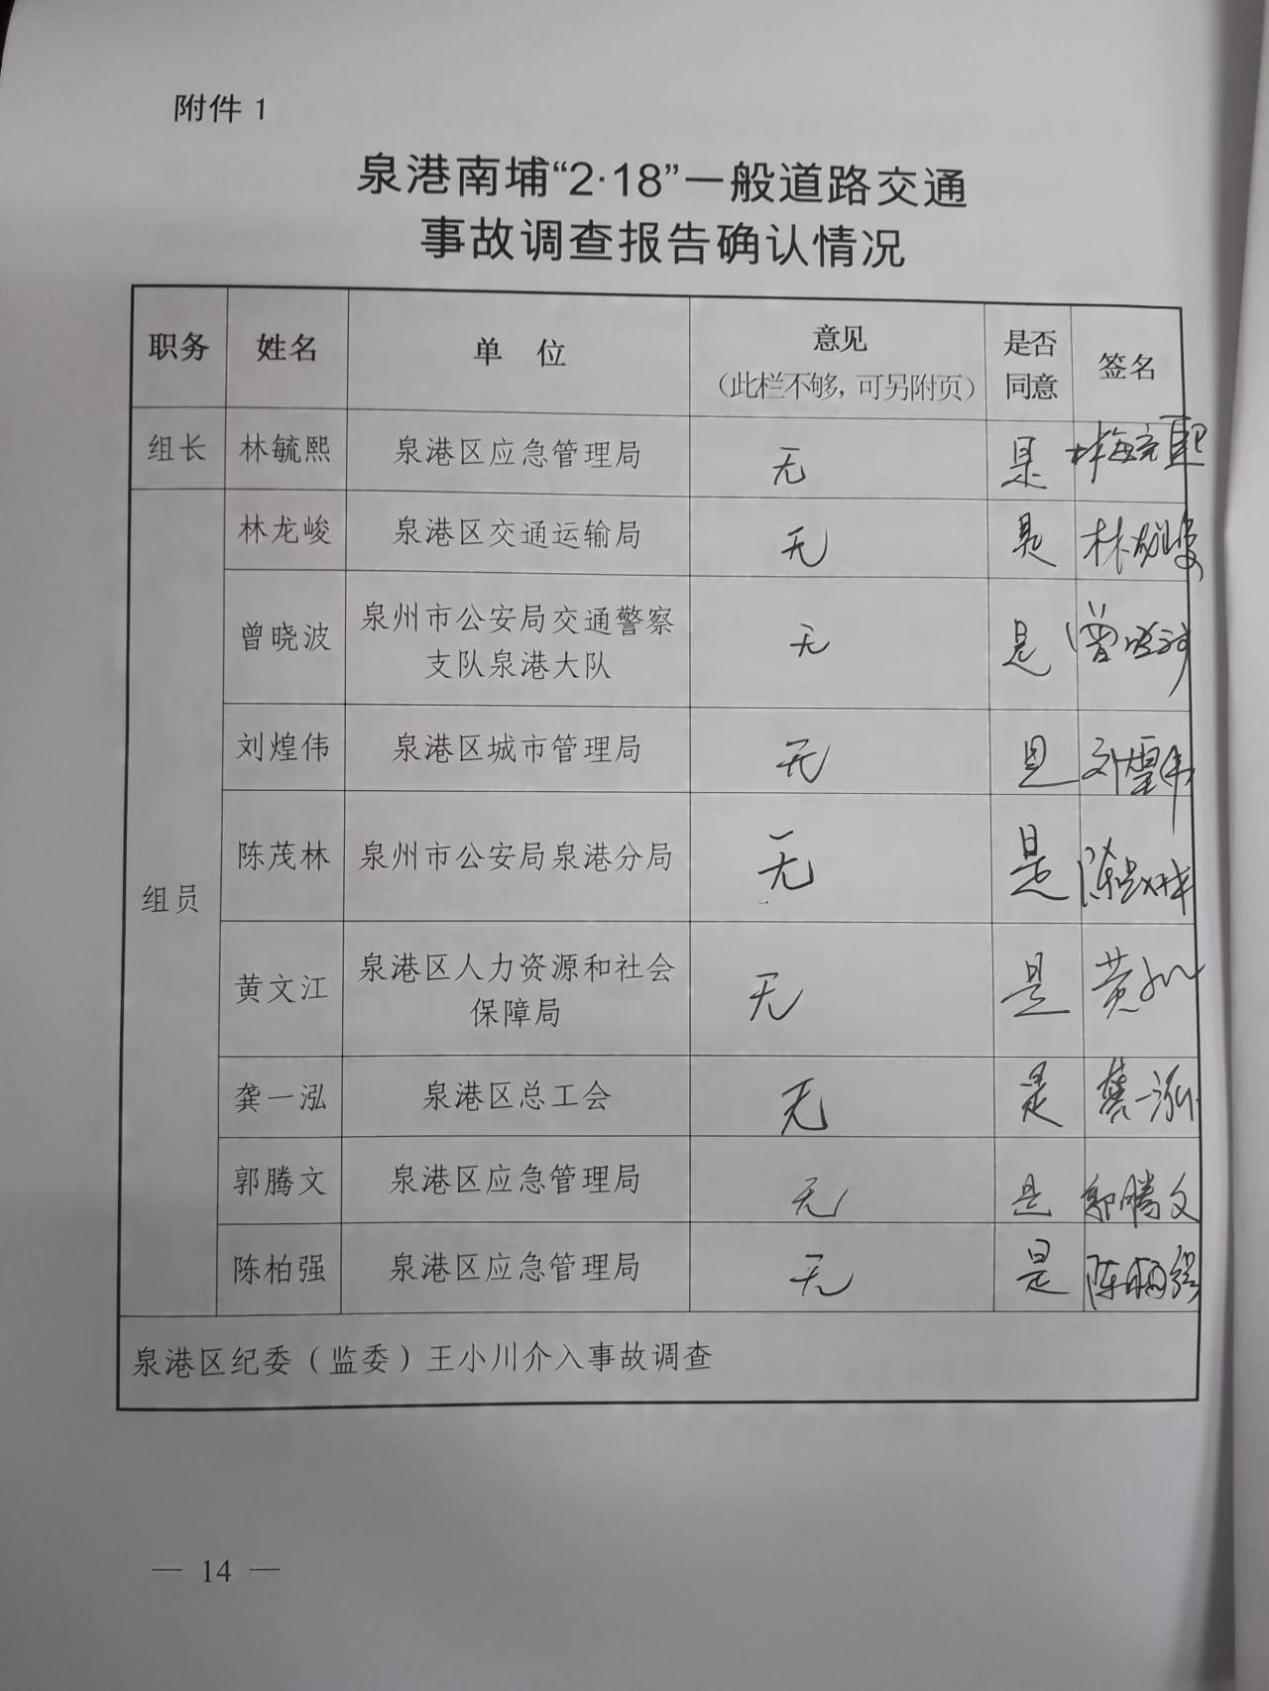 附件 1
泉港南埔“2·18”一般道路交通
事故调查报告确认情况
职务 姓名 单 位 意见 是否 签名
（此栏不够，可另附页） 同意
组长 林毓熙 泉港区应急管理局 无 是 林毓熙
林龙峻 泉港区交通运输局 无 是 林龙峻
曾晓波 泉州市公安局交通警察 无 是 曾晓波
支队泉港大队
刘煌伟 泉港区城市管理局 无 是 刘煌伟
陈茂林 泉州市公安局泉港分局 无 是 陈茂林
组员
黄文江 泉港区人力资源和社会 无 是 黄
保障局
龚一泓 泉港区总工会 无 是 龚一泓
郭腾文 泉港区应急管理局 无 是 郭腾文
陈柏强 泉港区应急管理局 无 是 陈柏强
泉港区纪委（监委）王小川介入事故调查
— 14 —